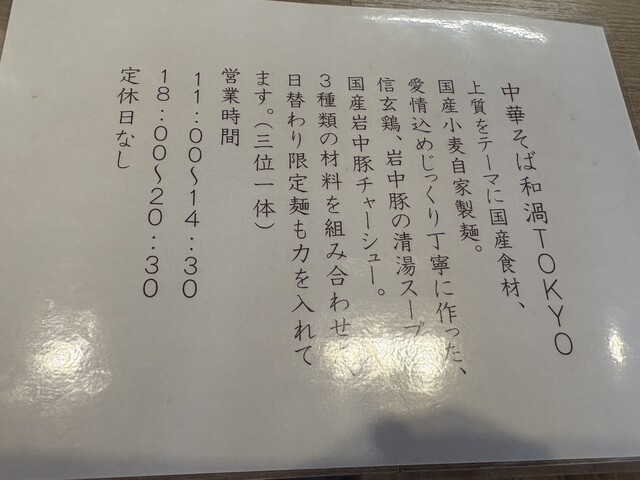 中華そば和渦TOKYO
上質をテーマに国産食材、
国産小麦自家製麺。
愛情込めじっくり丁寧に作った、
信玄鶏、岩中豚の清湯スープ
国産岩中豚チャーシュー。
3種類の材料を組み合わせ
日替わり限定麺も力を入れて
ます。(三位一体)
営業時間
11:00〜14:30
18:00〜20:30
定休日なし